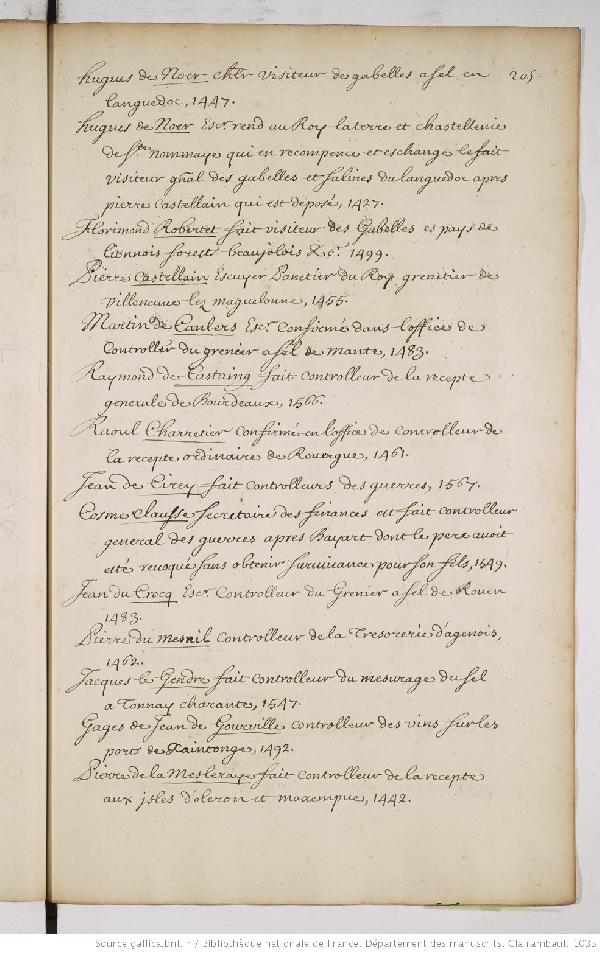 hugues de Noer chlr visiteur des gabelles a sel en 205
languedoc, 1447.
hugues de Noer Escr rend au Roy la terre et chastellenie
de Ste nommaye qui en recompence et eschange le fait
visiteur gñal des gabelles et salines du languedoc apres
pierre Castellain qui est deposé, 1427.
Florimond Robertet fait visiteur des Gabelles es pays de
Lionnois forest beaujolois &c. 1499.
Pierre Castellain Escuyer Panetier du Roy grenetier de
Villeneuve lez maguelonne, 1455.
Martin de Canlers Escr confirmé dans l'office de
Controller du grenier a sel de mante, 1483.
Raymond de Castaing fait controlleur de la recepte
generale de Bourdeaux, 1566.
Raoul Charretier confirmé en l'office de controlleur de
la recepte ordinaire de Rouergue, 1461.
Jean de Cirey fait controlleurs des guerres, 1567.
Cosme Clausse secretaire des finances est fait controlleur
general des guerres apres Bayart dont le pere avoit
esté revoqué sans obtenir survivance pour son fils, 1549.
Jean du Crocq Escr Controlleur du Grenier a sel de Rouen
1483.
Pierre du mesnil controlleur de la Tresorerie d'agenois,
1462.
Jacques le Gendre fait controlleur du mesurage du sel
a Tonnay charante, 1547.
Gages de Jean de Gourville controlleur des vins sur les
ports de Xaintonge, 1492.
Pierre de la Mesleraye fait controlleur de la recepte
aux jsles d'oleron et maxempue, 1442.
Source gallica.bnf.fr / Bibliothèque nationale de France. Département des manuscrits. Clairambault 1035